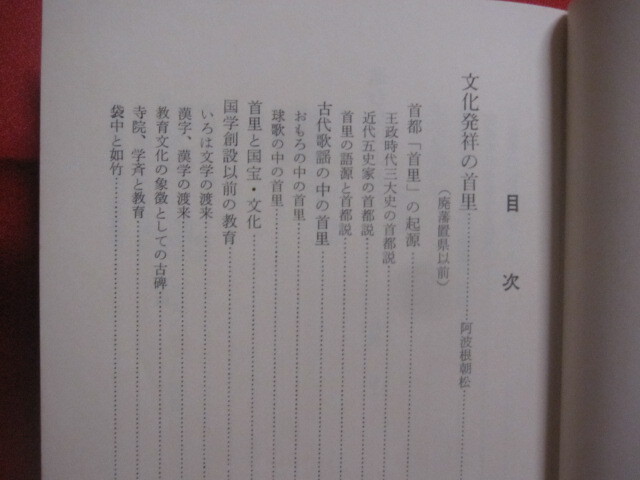 目次
文化発祥の首里……………阿波根朝松
(廃藩置県以前)
首都「首里」の起源
王政時代三大史の首都説
近代五史家の首都説
首里の語源と首都説
古代歌謡の中の首里
おもろの中の首里
球歌の中の首里
首里と国宝・文化
国学創設以前の教育
いろは文学の渡来
漢字、漢学の渡来
教育文化の象徴としての古碑
寺院、学斉と教育
袋中と如竹